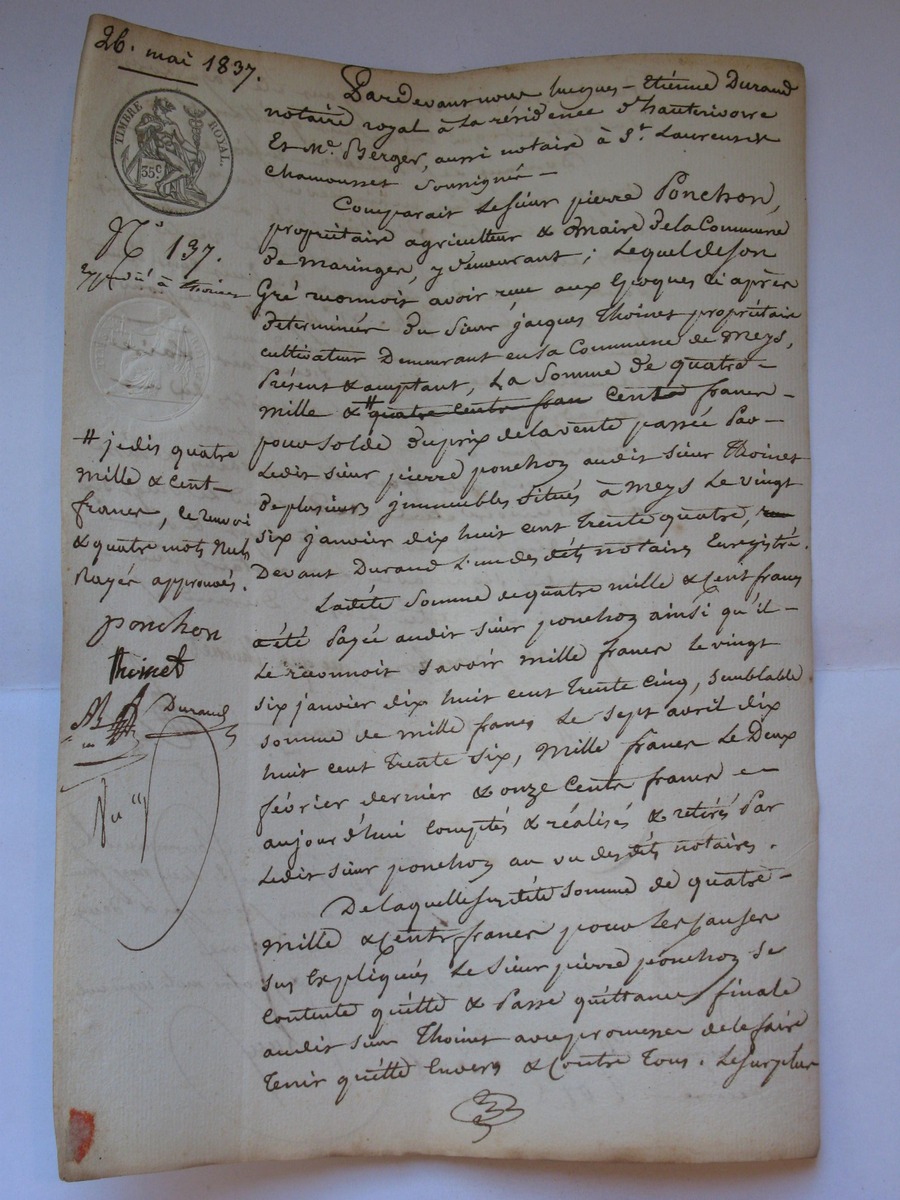 26. mai 1837.
TIMBRE ROYAL.
35 c.
N° 137.
Expédié à thoinet
Pardevant nous hugues-Etienne Durand
notaire royal à La résidence d'hauterivoire
Et Me. Berger, aussi notaire à St. Laurent de
Chamousset soussignés —
Comparait Le sieur pierre Ponchon,
propriétaire agriculteur & maire de la Commune
de maringes, y demeurant ; Lequel de son
Gré reconnoit avoir reçu aux Epoques ci après
determinées du sieur jacques Thoinet propriétaire
cultivateur Demeurant en la Commune de meys,
Présent & acceptant, La Somme de quatre-
mille & # quatre cents fran Cent francs-
pour solde du prix de la vente passée Par-
Ledit sieur pierre ponchon audit sieur Thoinet
de plusieurs jmmeubles situés à meys Le vingt
six janvier dix huit cent Trente quatre,
Devant Durand L'un des dits notaires Enregistré.
Ladite Somme de quatre mille & Cent francs
a été Payée audit sieur ponchon ainsi qu'il-
Le reconnoit savoir mille francs Le vingt
six janvier dix huit cent Trente Cinq, semblable
somme de mille francs Le sept avril dix
huit cent Trente six, Mille francs Le Deux
février dernier & onze Cents francs —
aujourd'hui Comptés & réalisés & retirés Par
Ledit sieur ponchon au vu des dits notaires.
De laquelle susdite somme de quatre-
mille & Cent francs pour les causes
sus Expliqués Le sieur pierre ponchon se
Contente quitte & Passe quittance finale
audit sieur Thoinet avec promesse de le faire
Tenir quitte Envers & Contre Tous. Le surplus
# je dis quatre
mille & cent-
francs, le renvoi
& quatre mots Nuls
Rayés approuvés.
ponchon
thoinet
Durand